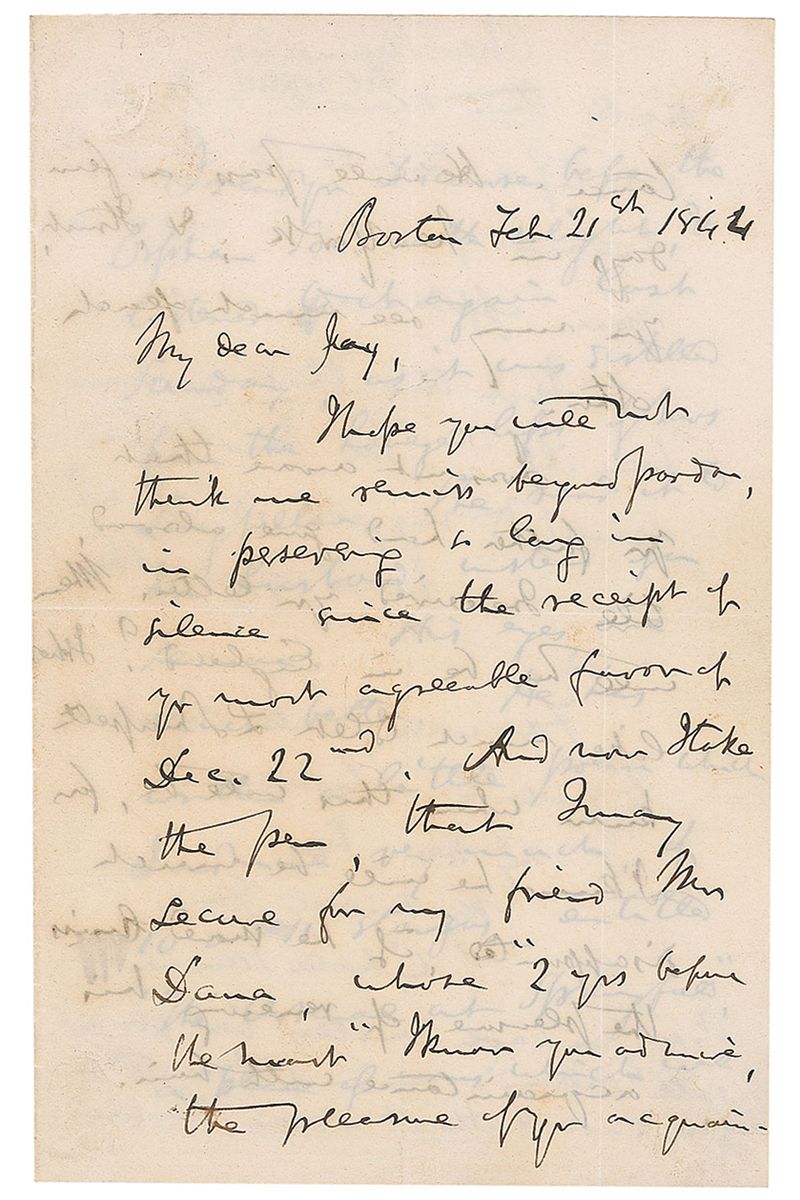 Boston Feb 21st 1844
My dear Jay,
I hope you will not
think me remiss beyond pardon,
in persevering so long in
silence since the receipt of
yr most agreeable favor of
Dec. 22nd. And now I take
the pen, that I may
secure for my friend Mr
Dana, whose "2 yrs before
the mast" I know you admire,
the pleasure of yr acquain-